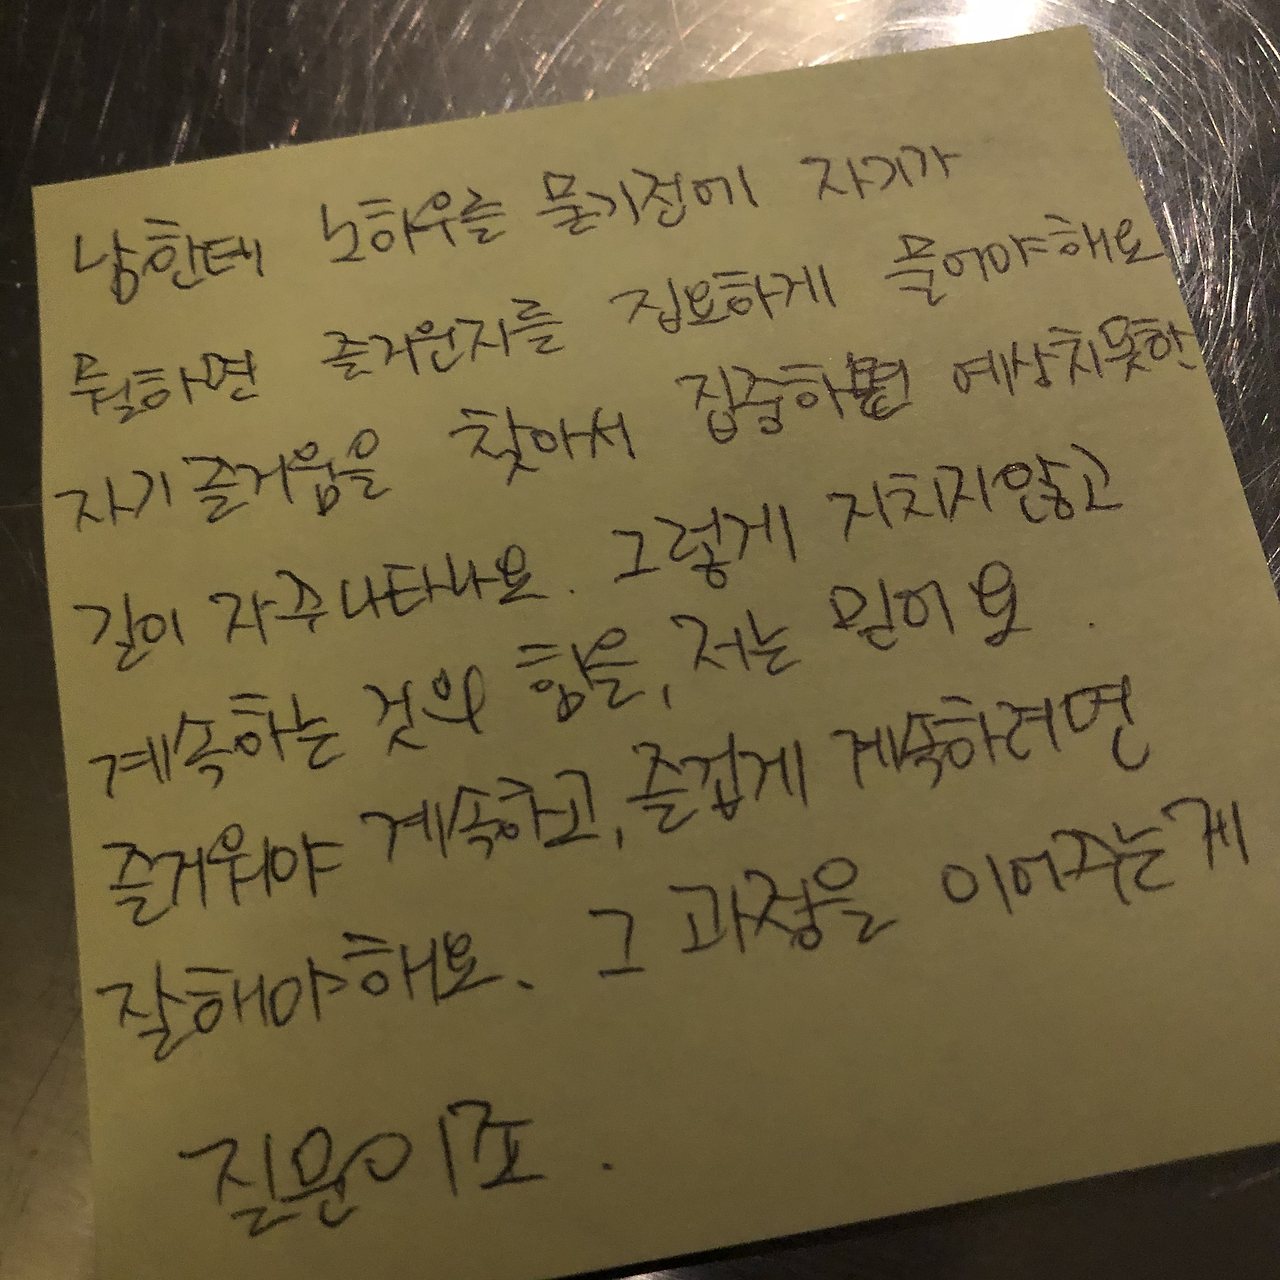 남한테 노하우를 물기전에 자기가
뭘하면 즐거운지를 집요하게 물어야해요
자기즐거움을 찾아서 집중하면 예상치못한
길이 자주나타나요. 그렇게 지치지않고
계속하는 것의 힘을, 저는 믿어요.
즐거워야 계속하고, 즐겁게 계속하려면
잘해야해요. 그 과정을 이어주는게
질문이죠.